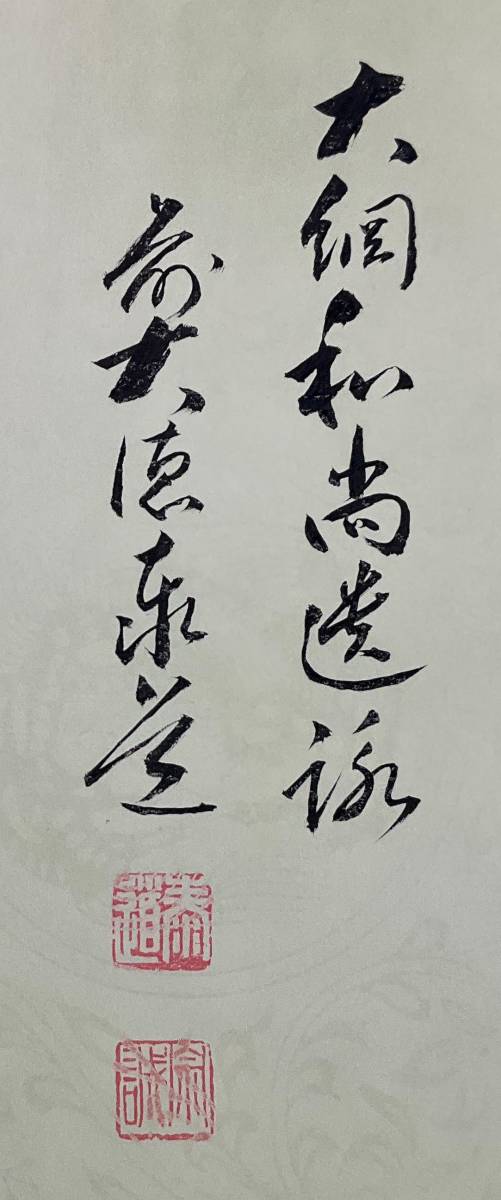 大綱和尚遺詠
前大徳泰道
泰道
宗誠